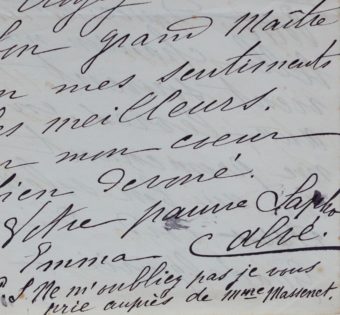 mon grand Maître
en mes sentiments
les meilleurs.
en mon coeur
bien dévoué.
Votre pauvre Sapho
Emma Calvé.
P.S. Ne m'oubliez pas je vous
prie auprès de Mme Massenet.